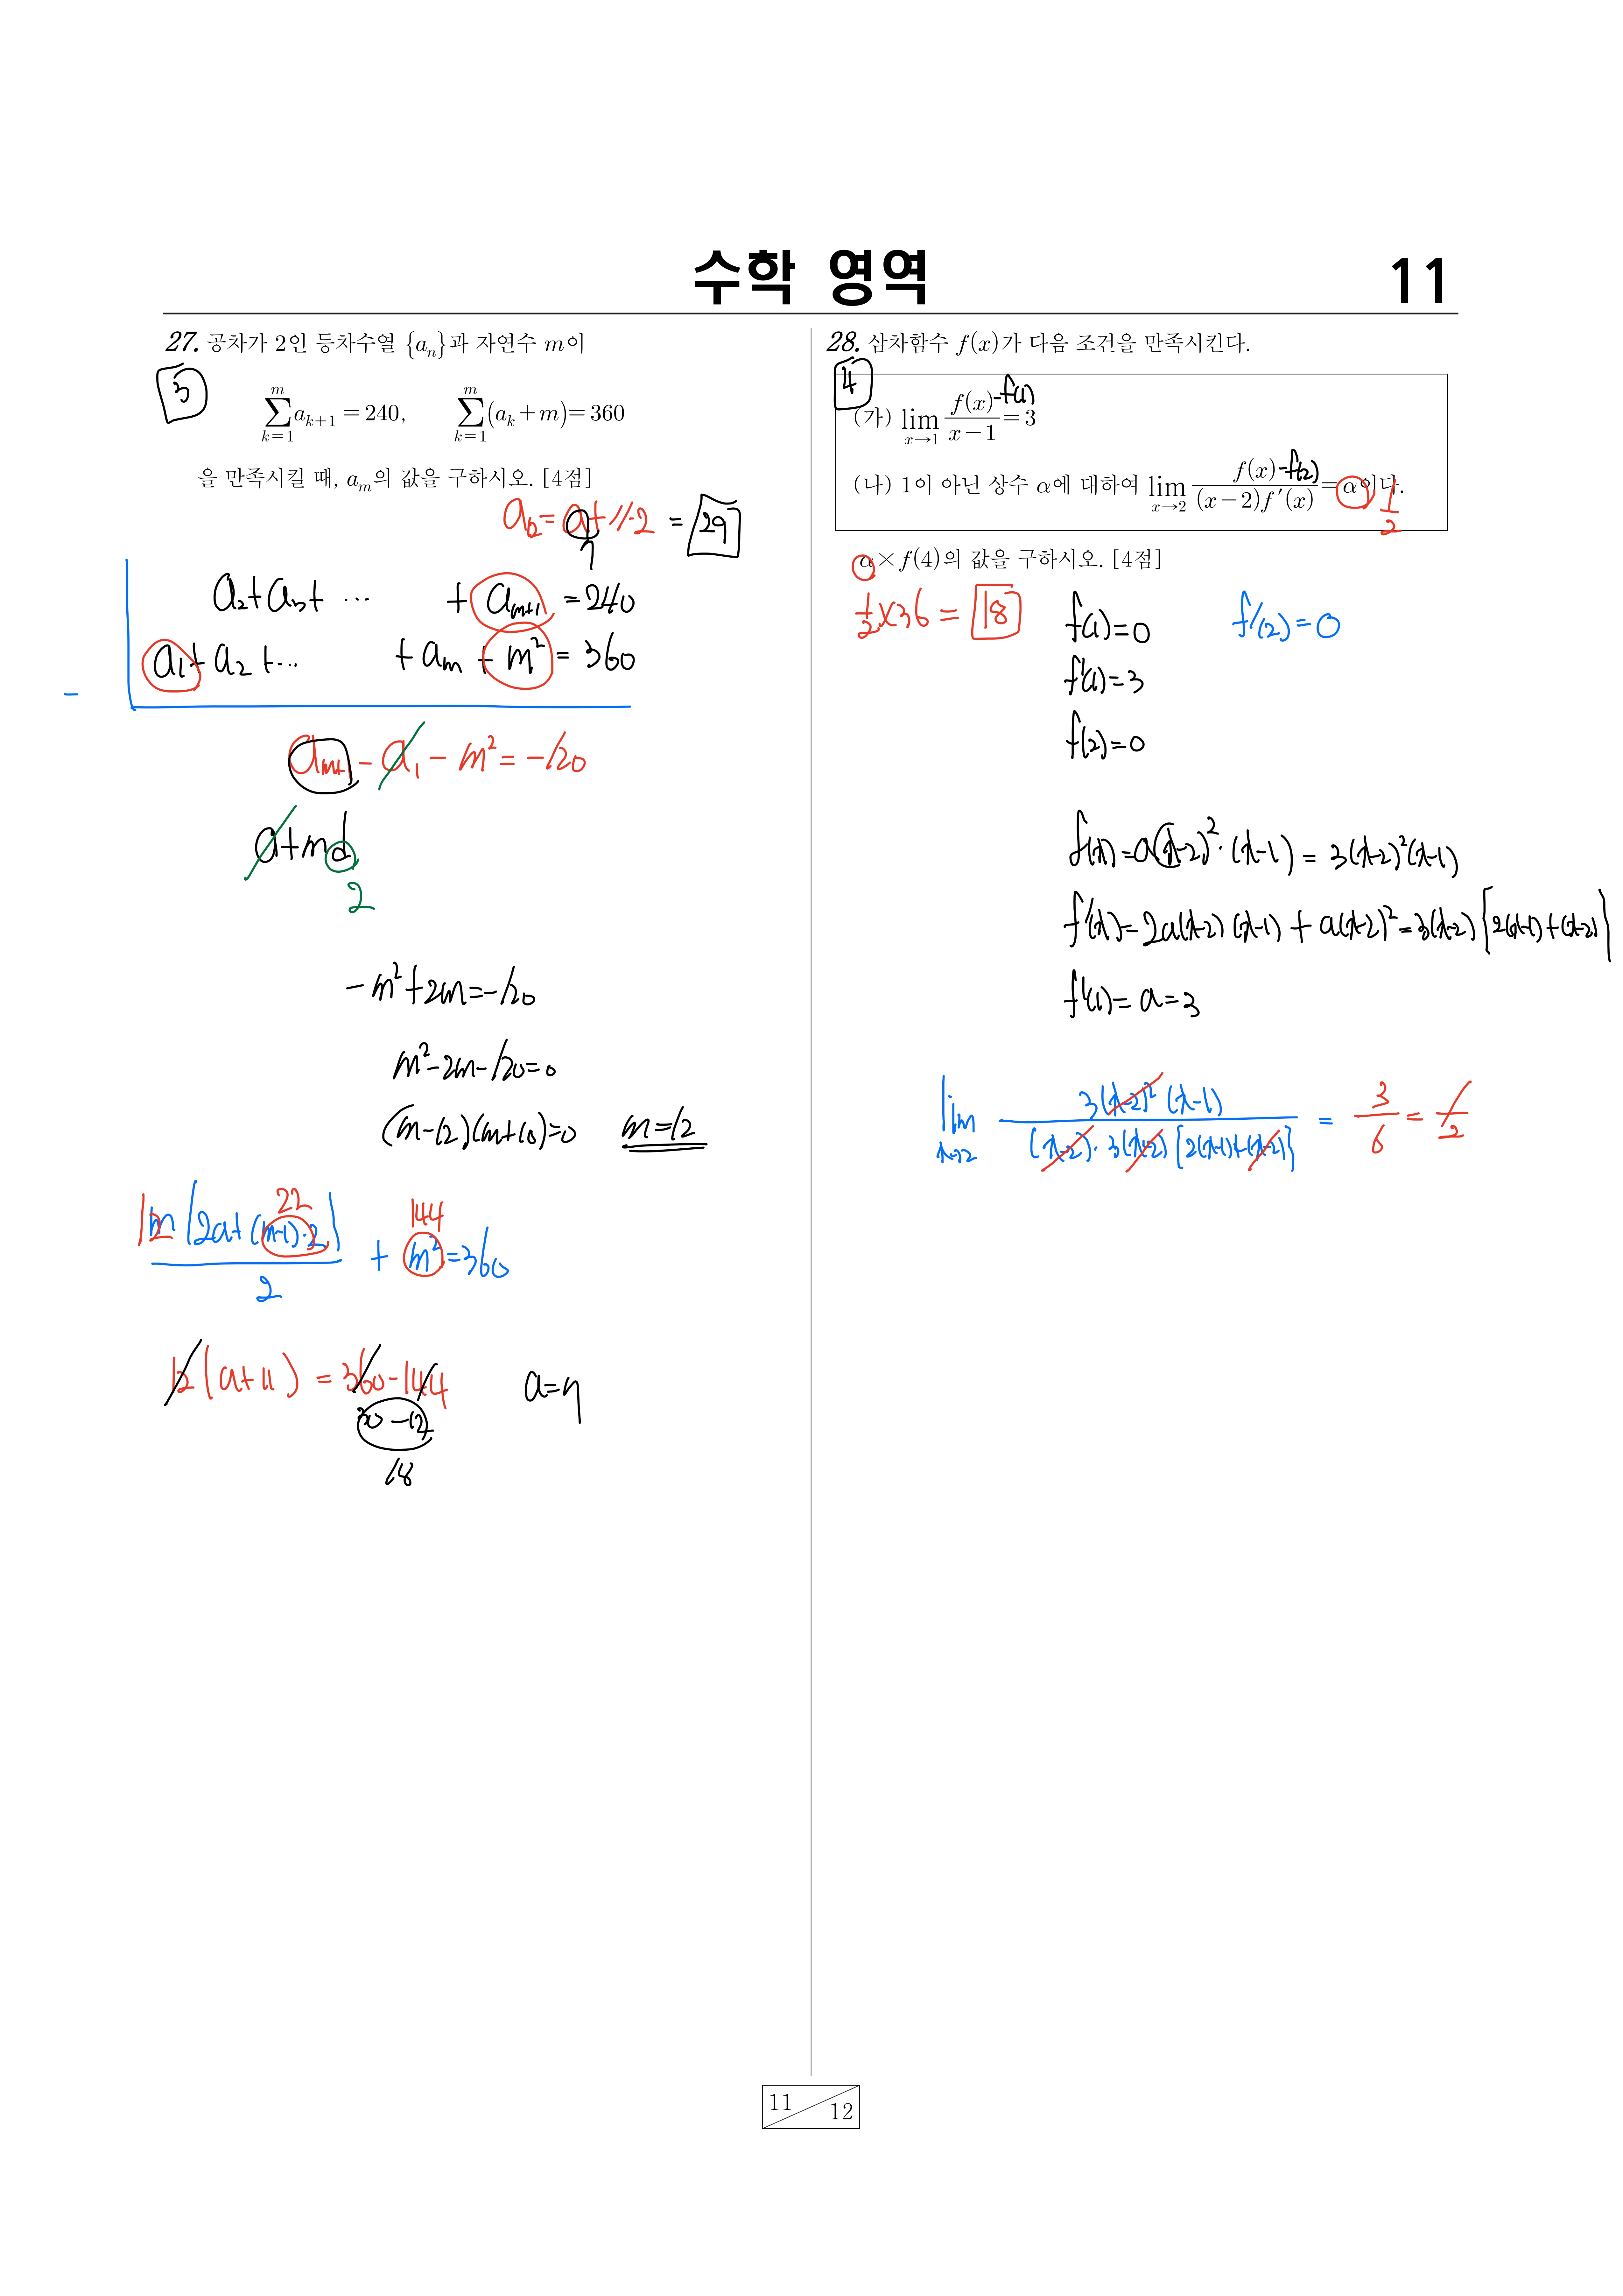 수학 영역
11
27. 공차가 2인 등차수열 {aₙ}과 자연수 m이
3
∑_{k=1}^{m} a_{k+1} = 240, ∑_{k=1}^{m} (a_k + m) = 360
을 만족시킬 때, a_m의 값을 구하시오. [4점]
a₁₂ = a + 11·2 = 29
7
a₂ + a₃ + ⋯ + a_{m+1} = 240
a₁ + a₂ + ⋯ + a_m + m² = 360
−
a_{m+1} − a₁ − m² = −120
a + md
2
−m² + 2m = −120
m² − 2m − 120 = 0
(m−12)(m+10) = 0 m = 12
12 22 144
m(2a + (m−1)·2)/2 + m² = 360
12(a+11) = 360 − 144 a = 7
30 − 12
18
28. 삼차함수 f(x)가 다음 조건을 만족시킨다.
4
(가) lim_{x→1} (f(x) − f(1))/(x−1) = 3
(나) 1이 아닌 상수 α에 대하여 lim_{x→2} (f(x) − f(2))/((x−2)f′(x)) = α이다.
1/2
α × f(4)의 값을 구하시오. [4점]
1/2 × 36 = 18
f(1) = 0 f′(2) = 0
f′(1) = 3
f(2) = 0
f(x) = a(x−2)²·(x−1) = 3(x−2)²(x−1)
f′(x) = 2a(x−2)(x−1) + a(x−2)² = 3(x−2){2(x−1)+(x−2)}
f′(1) = a = 3
lim_{x→2} 3(x−2)²(x−1)/((x−2)·3(x−2){2(x−1)+(x−2)}) = 3/6 = 1/2
11
12